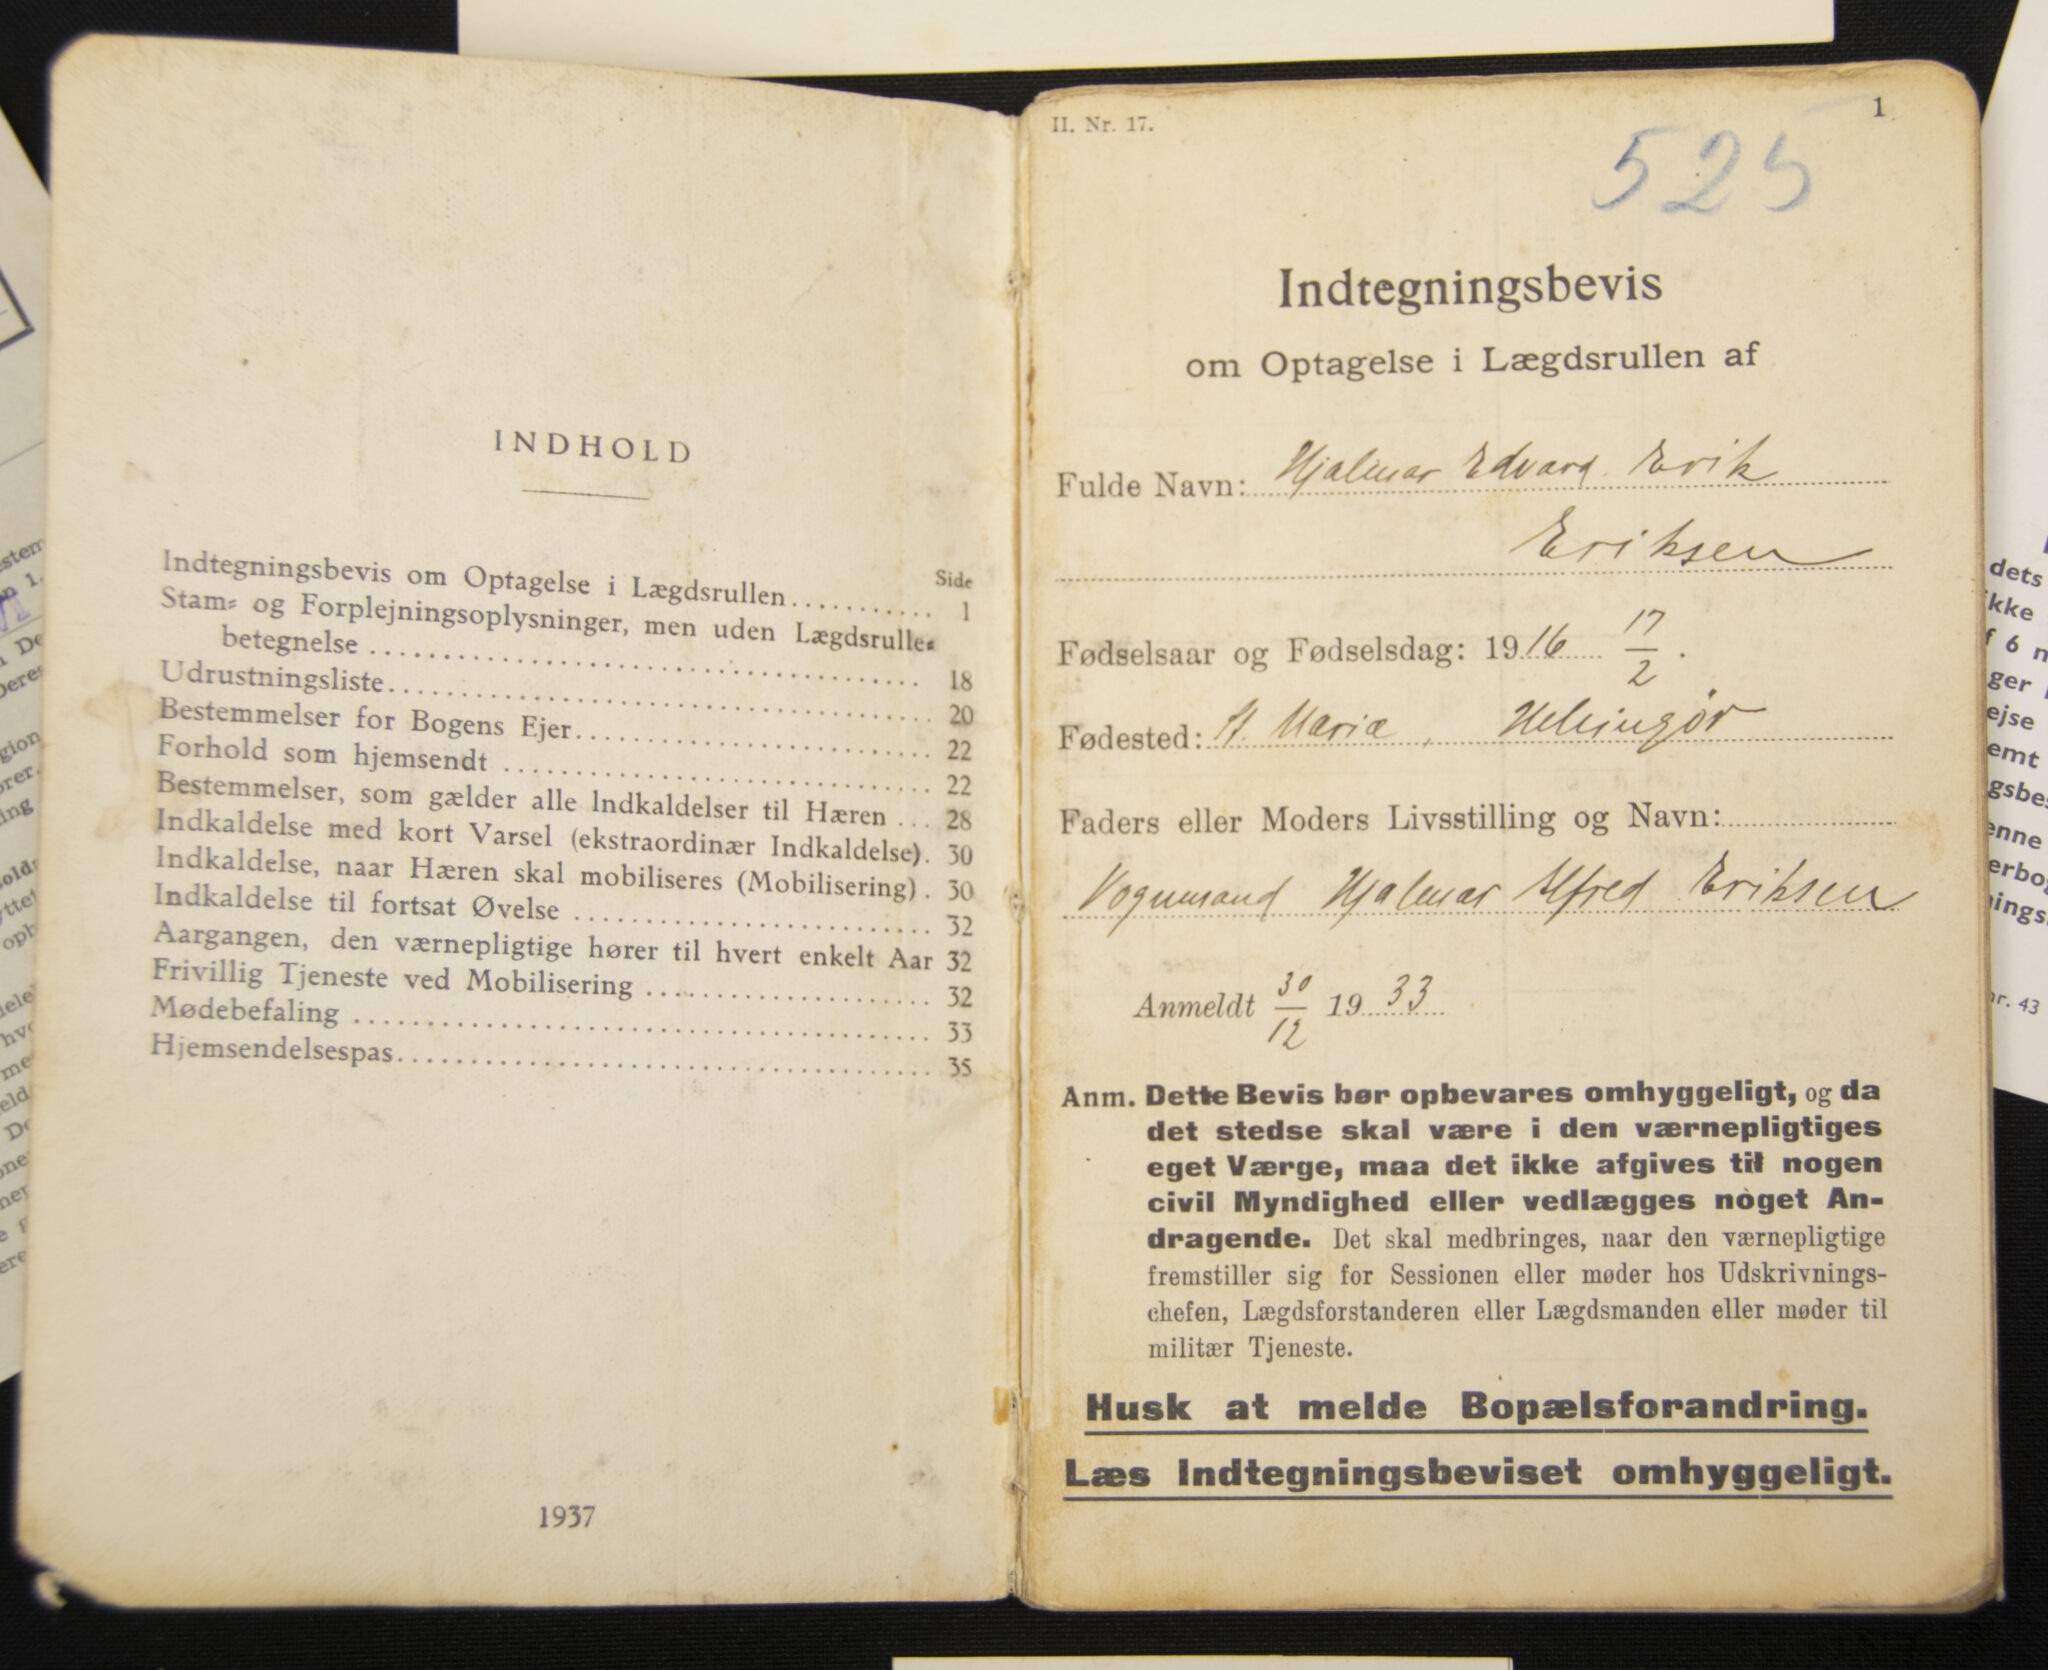 INDHOLD
Side
Indtegningsbevis om Optagelse i Lægdsrullen........... 1
Stam= og Forplejningsoplysninger, men uden Lægdsrulle=
betegnelse ................................ 18
Udrustningsliste................................ 20
Bestemmelser for Bogens Ejer..................... 22
Forhold som hjemsendt .......................... 22
Bestemmelser, som gælder alle Indkaldelser til Hæren ... 28
Indkaldelse med kort Varsel (ekstraordinær Indkaldelse). 30
Indkaldelse, naar Hæren skal mobiliseres (Mobilisering) . 30
Indkaldelse til fortsat Øvelse ..................... 32
Aargangen, den værnepligtige hører til hvert enkelt Aar 32
Frivillig Tjeneste ved Mobilisering ................. 32
Mødebefaling ................................ 33
Hjemsendelsespas............................. 35
1937
II. Nr. 17.
1
525
Indtegningsbevis
om Optagelse i Lægdsrullen af
Fulde Navn: Hjalmar Edvard Erik
Eriksen
Fødselsaar og Fødselsdag: 1916 17/2.
Fødested: St. Mariæ, Helsingør
Faders eller Moders Livsstilling og Navn:
Vognmand Hjalmar Alfred Eriksen
Anmeldt 30/12 1933
Anm. Dette Bevis bør opbevares omhyggeligt, og da
det stedse skal være i den værnepligtiges
eget Værge, maa det ikke afgives til nogen
civil Myndighed eller vedlægges noget An-
dragende. Det skal medbringes, naar den værnepligtige
fremstiller sig for Sessionen eller møder hos Udskrivnings-
chefen, Lægdsforstanderen eller Lægdsmanden eller møder til
militær Tjeneste.
Husk at melde Bopælsforandring.
Læs Indtegningsbeviset omhyggeligt.